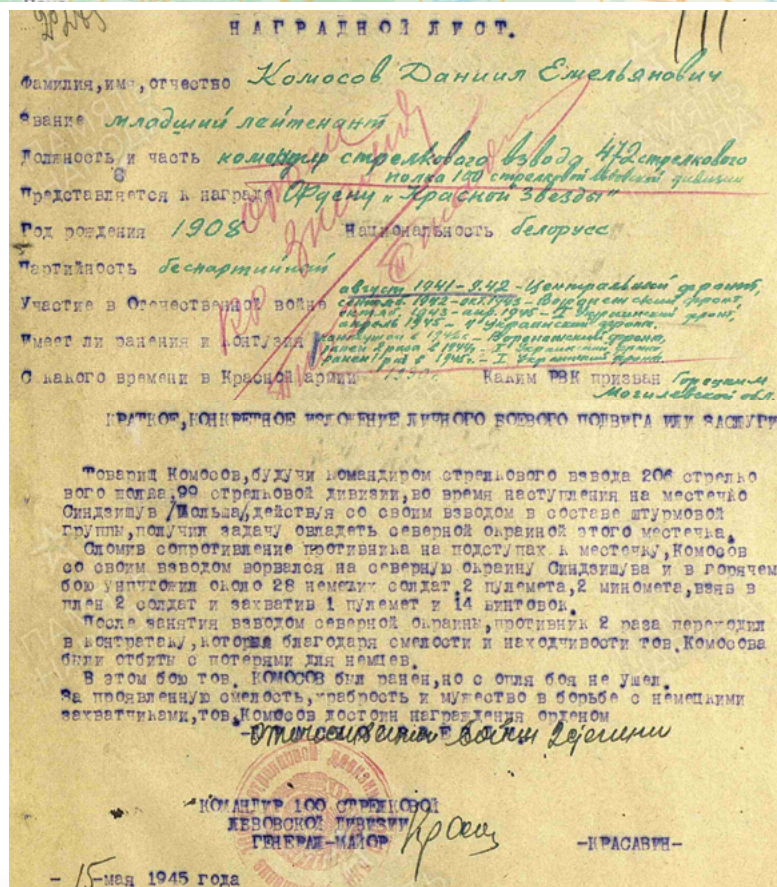 НАГРАДНОЙ ЛИСТ.
Фамилия,имя,отчество Комосов Даниил Емельянович
Звание младший лейтенант
Должность и часть командир стрелкового взвода 472 стрелкового
полка 100 стрелковой Львовской дивизии
Представляется к награде Ордену "Красной Звезды"
Год рождения 1908 Национальность белорусс
Партийность беспартийный
август 1941-9.42-Центральный фронт,
Участие в Отечественной войне сентябрь 1942-окт.1943-Воронежский фронт,
октябр. 1943-апр.1945-I Украинский фронт,
апрель 1945-4 Украинский фронт.
Имеет ли ранения и контузия контужен в 1942г.-Воронежский фронт,
ранен 2 раза в 1944г.-I Украинский фронт
ранен 1 раз в 1945г.-I Украинский фронт.
С какого времени в Красной армии Каким РВК призван Горецким
Могилевской обл.
КРАТКОЕ,КОНКРЕТНОЕ ИЗЛОЖЕНИЕ ЛИЧНОГО БОЕВОГО ПОДВИГА ИЛИ ЗАСЛУГИ
Товарищ Комосов,будучи командиром стрелкового взвода 206 стрелко
вого полка,99 стрелковой дивизии,во время наступления на местечко
Синдзишув /Польша/,действуя со своим взводом в составе штурмовой
группы,получил задачу овладеть северной окраиной этого местечка.
Сломив сопротивление противника на подступах к местечку,Комосов
со своим взводом ворвался на северную окраину Синдзишува и в горячем
бою уничтожил около 28 немецких солдат,2 пулемета,2 миномета,взяв в
плен 2 солдат и захватив 1 пулемет и 14 винтовок.
После занятия взводом северной окраины,противник 2 раза переходил
в контратаку,которые благодаря смелости и находчивости тов.Комосова
были отбиты с потерями для немцев.
В этом бою тов. КОМОСОВ был ранен,но с поля боя не ушел.
За проявленную смелость,храбрость и мужество в борьбе с немецкими
захватчиками,тов.Комосов достоин награждения орденом
Отечественной войны 2 степени
КОМАНДИР 100 СТРЕЛКОВОЙ
ЛЬВОВСКОЙ ДИВИЗИИ
ГЕНЕРАЛ-МАЙОР -КРАСАВИН-
- 15-мая 1945 года